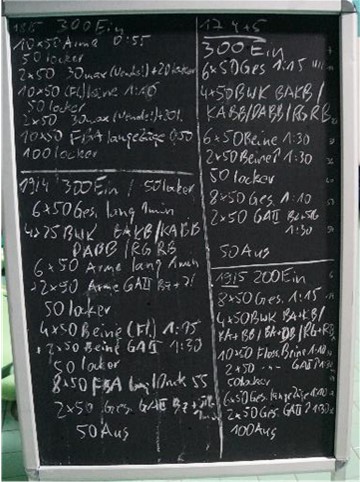 300 Ein
10x50 Arme 0:55
50 locker
2x50 30max (Wende!) + 20 locker
10x50 (Fl.) 
50 locker
2x50 30max (Wende!) + 20 l.
10x50 FBA lange Züge 0:50
100 locker
19/4 300 Ein / 50 locker
6x50 Ges. lang 1min
4x25 BWK BAKB/KABB
DABB/RGRB
6x50 Arme lang 1min
2x50 Arme GAII
50 locker
4x50 Beine (Fl.) 1:15
2x50 Beine GAII 1:30
50 locker
8x50 FBA lang/Druck 55
2x50 Ges. GAII
50 Aus
17 4+5
300 Ein
6x50 Ges 1:15
4x50 BWK BAKB/
KABB/DABB/RGRB
6x50 Beine 1:30
2x50 Beine 1:30
50 locker
8x50 Ges. 1:10
2x50 GAII
1:30
50 Aus
19/5 200 Ein
8x50 Ges. 1:15
4x50 BWK BA+KB/
KA+BB/BA+DB/RG+RB
10x50 Floss. Beine 1:10
2x50 GAII
50 locker
6x50 Ges lange Züge 1:10
2x50 Ges. GAII 1:30
100 Aus